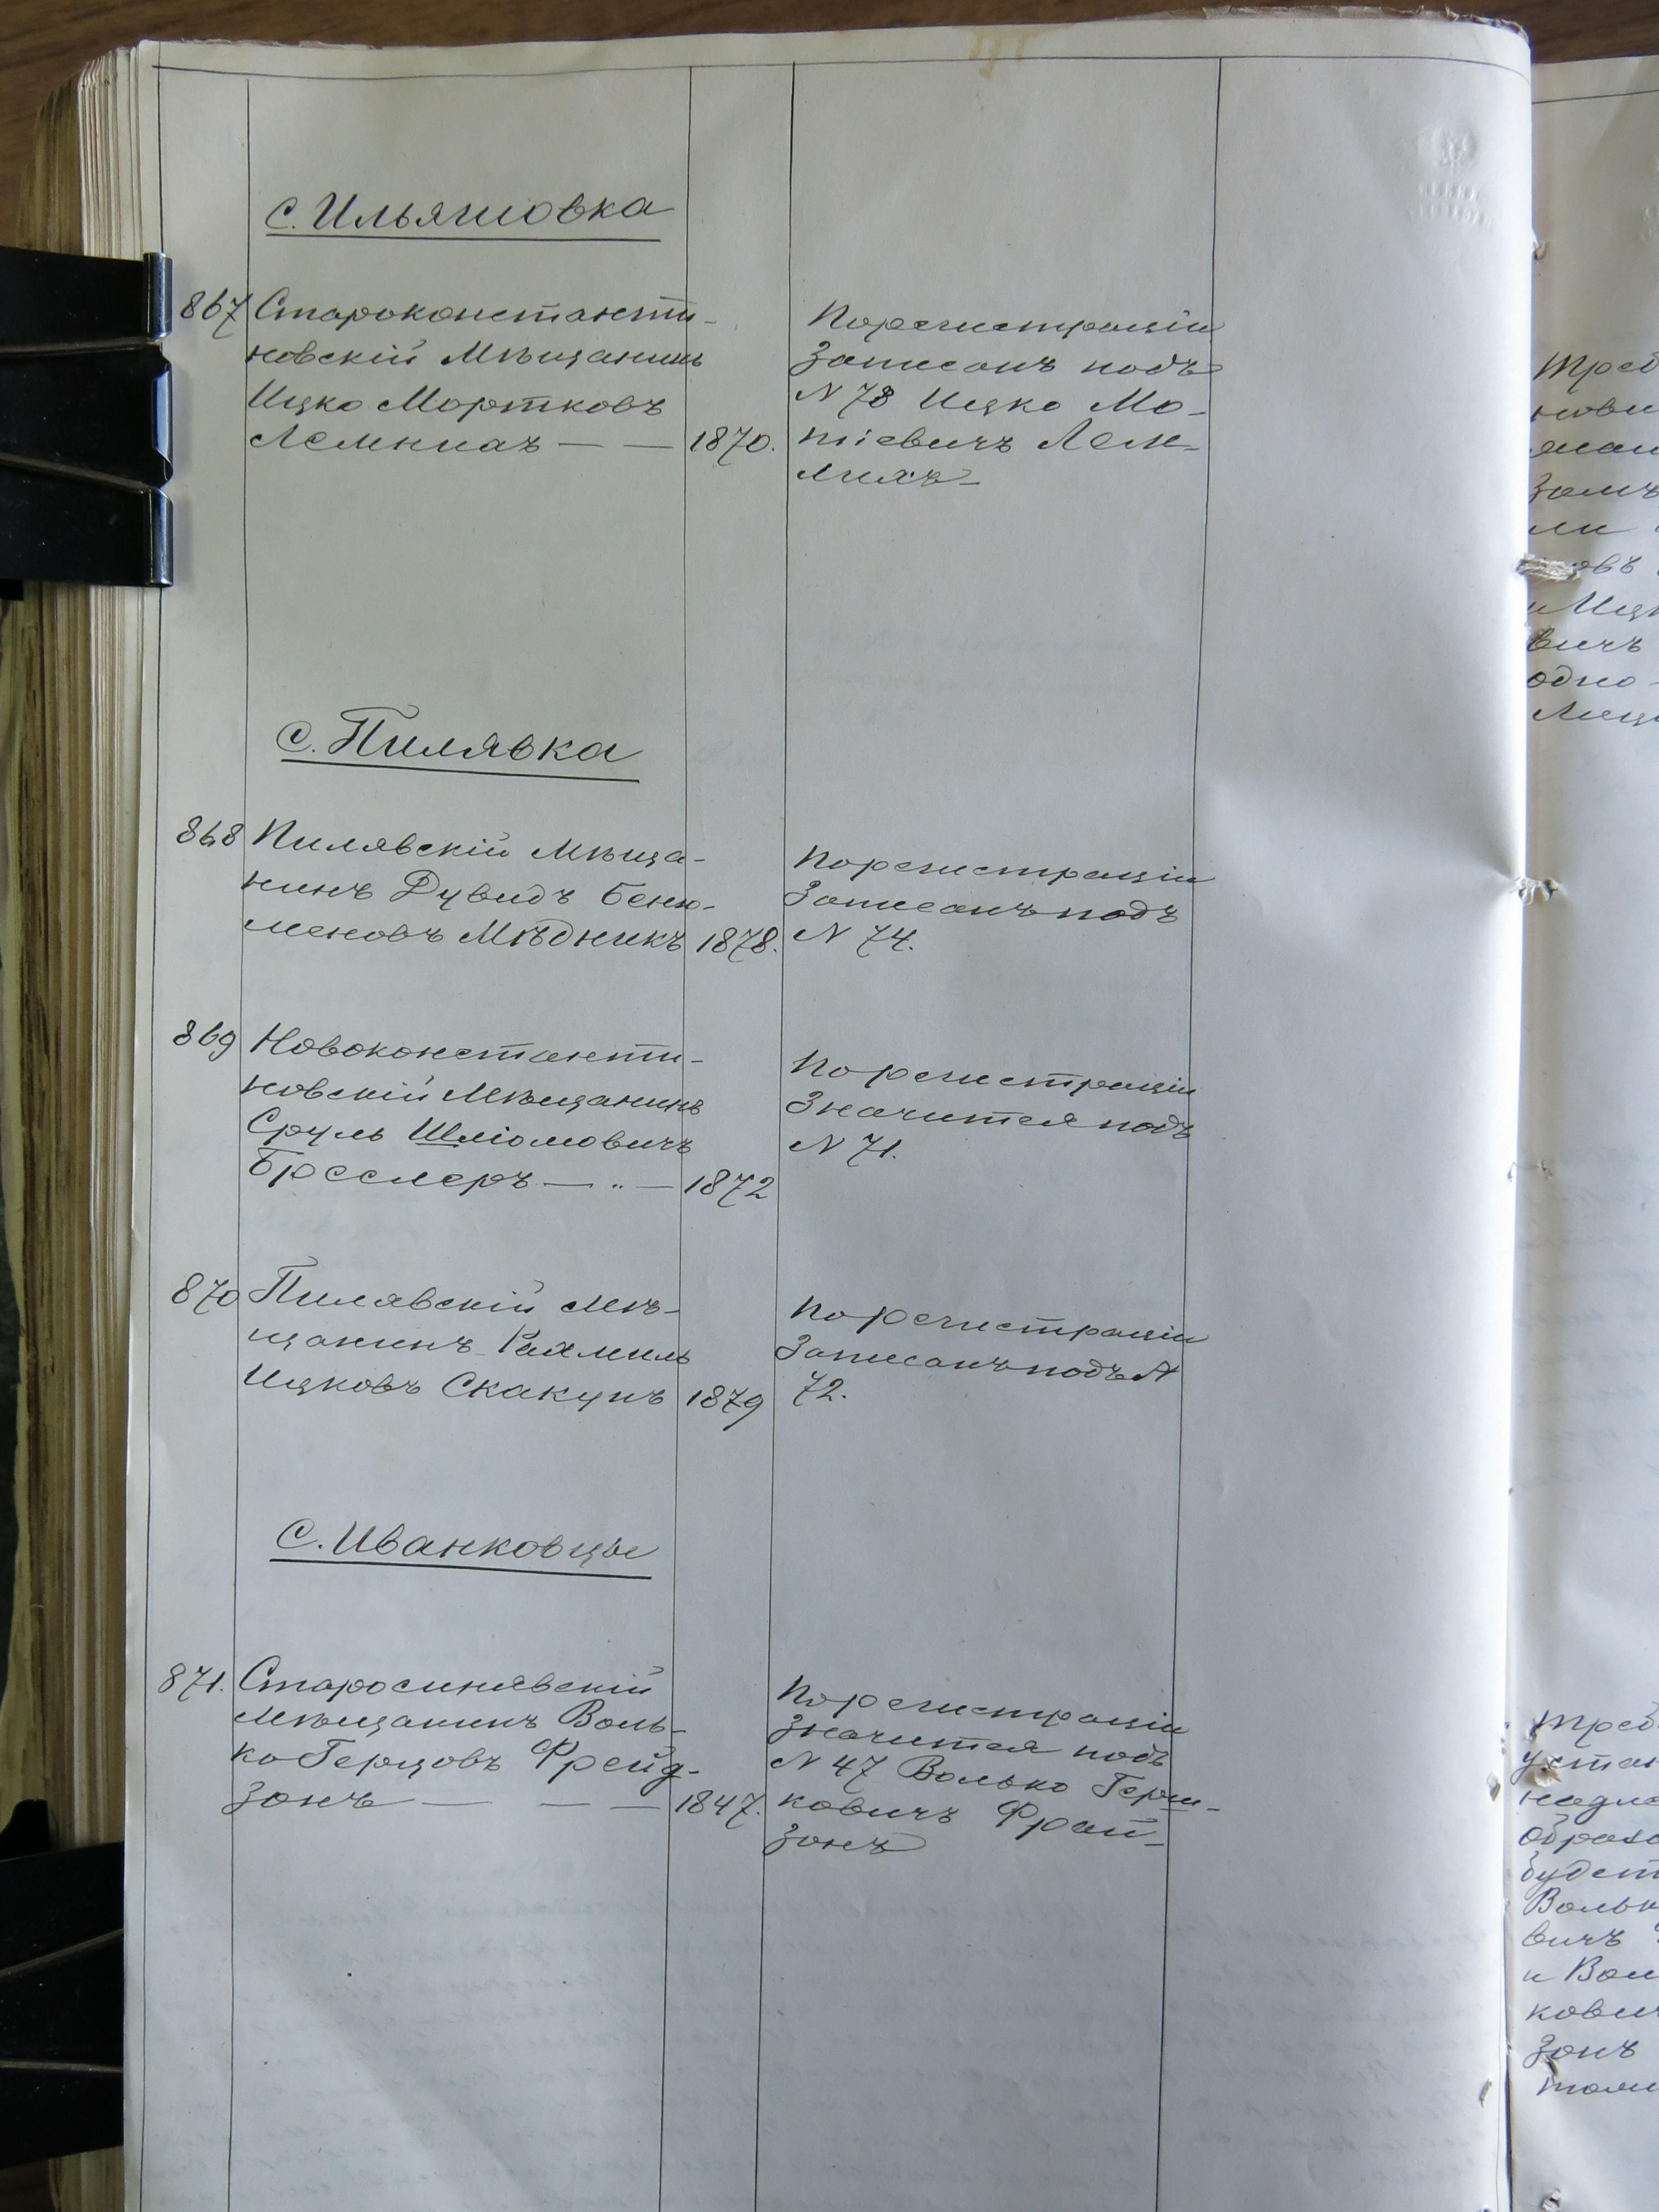 с. Ильяшовка
867 Староконстанти-
новскій Мѣщанинъ
Ицко Мортковъ
Лемпиаъ — — 1870.
По регистраціи
Записанъ подъ
N 78 Ицко Мо-
шіевичъ Лем-
с. Пилявка
868 Пилявскій Мѣща-
нинъ Дувидъ Беню-
меновъ Мѣдникъ 1878.
По регистраціи
Записанъ подъ
N 74.
869 Новоконстанти-
новскій Мѣщанинъ
Сруль Шліомовичъ
Бресслеръ — „ — 1872
По регистраціи
Значится подъ
N 71.
870 Пилявскій Мѣ-
щанинъ Рахмиль
Ицковъ Скакунъ 1879
По регистраціи
Записанъ подъ N
72.
с. Иванковцы
871. Старосинявскій
Мѣщанинъ Воль-
ко Герцовъ Фрейд-
зонъ — — — 1847.
По регистраціи
Значится подъ
N 47 Волько Герш-
ковичъ Фрай-
зонъ
Треб
нови
ли
овъ
и Ицк
вичъ
одно-
Лицо
Треб
устан
надле
Образо
будет
Вольк
вичъ
и Вол
кови
зонъ